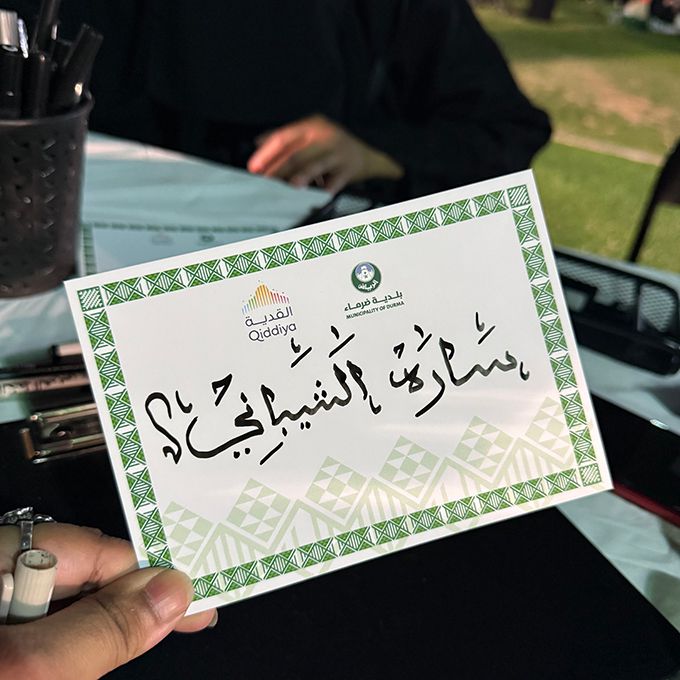 القدية
Qiddiya
بلدية ضرماء
MUNICIPALITY OF DURMA
سَارَه الشَيبَانِي